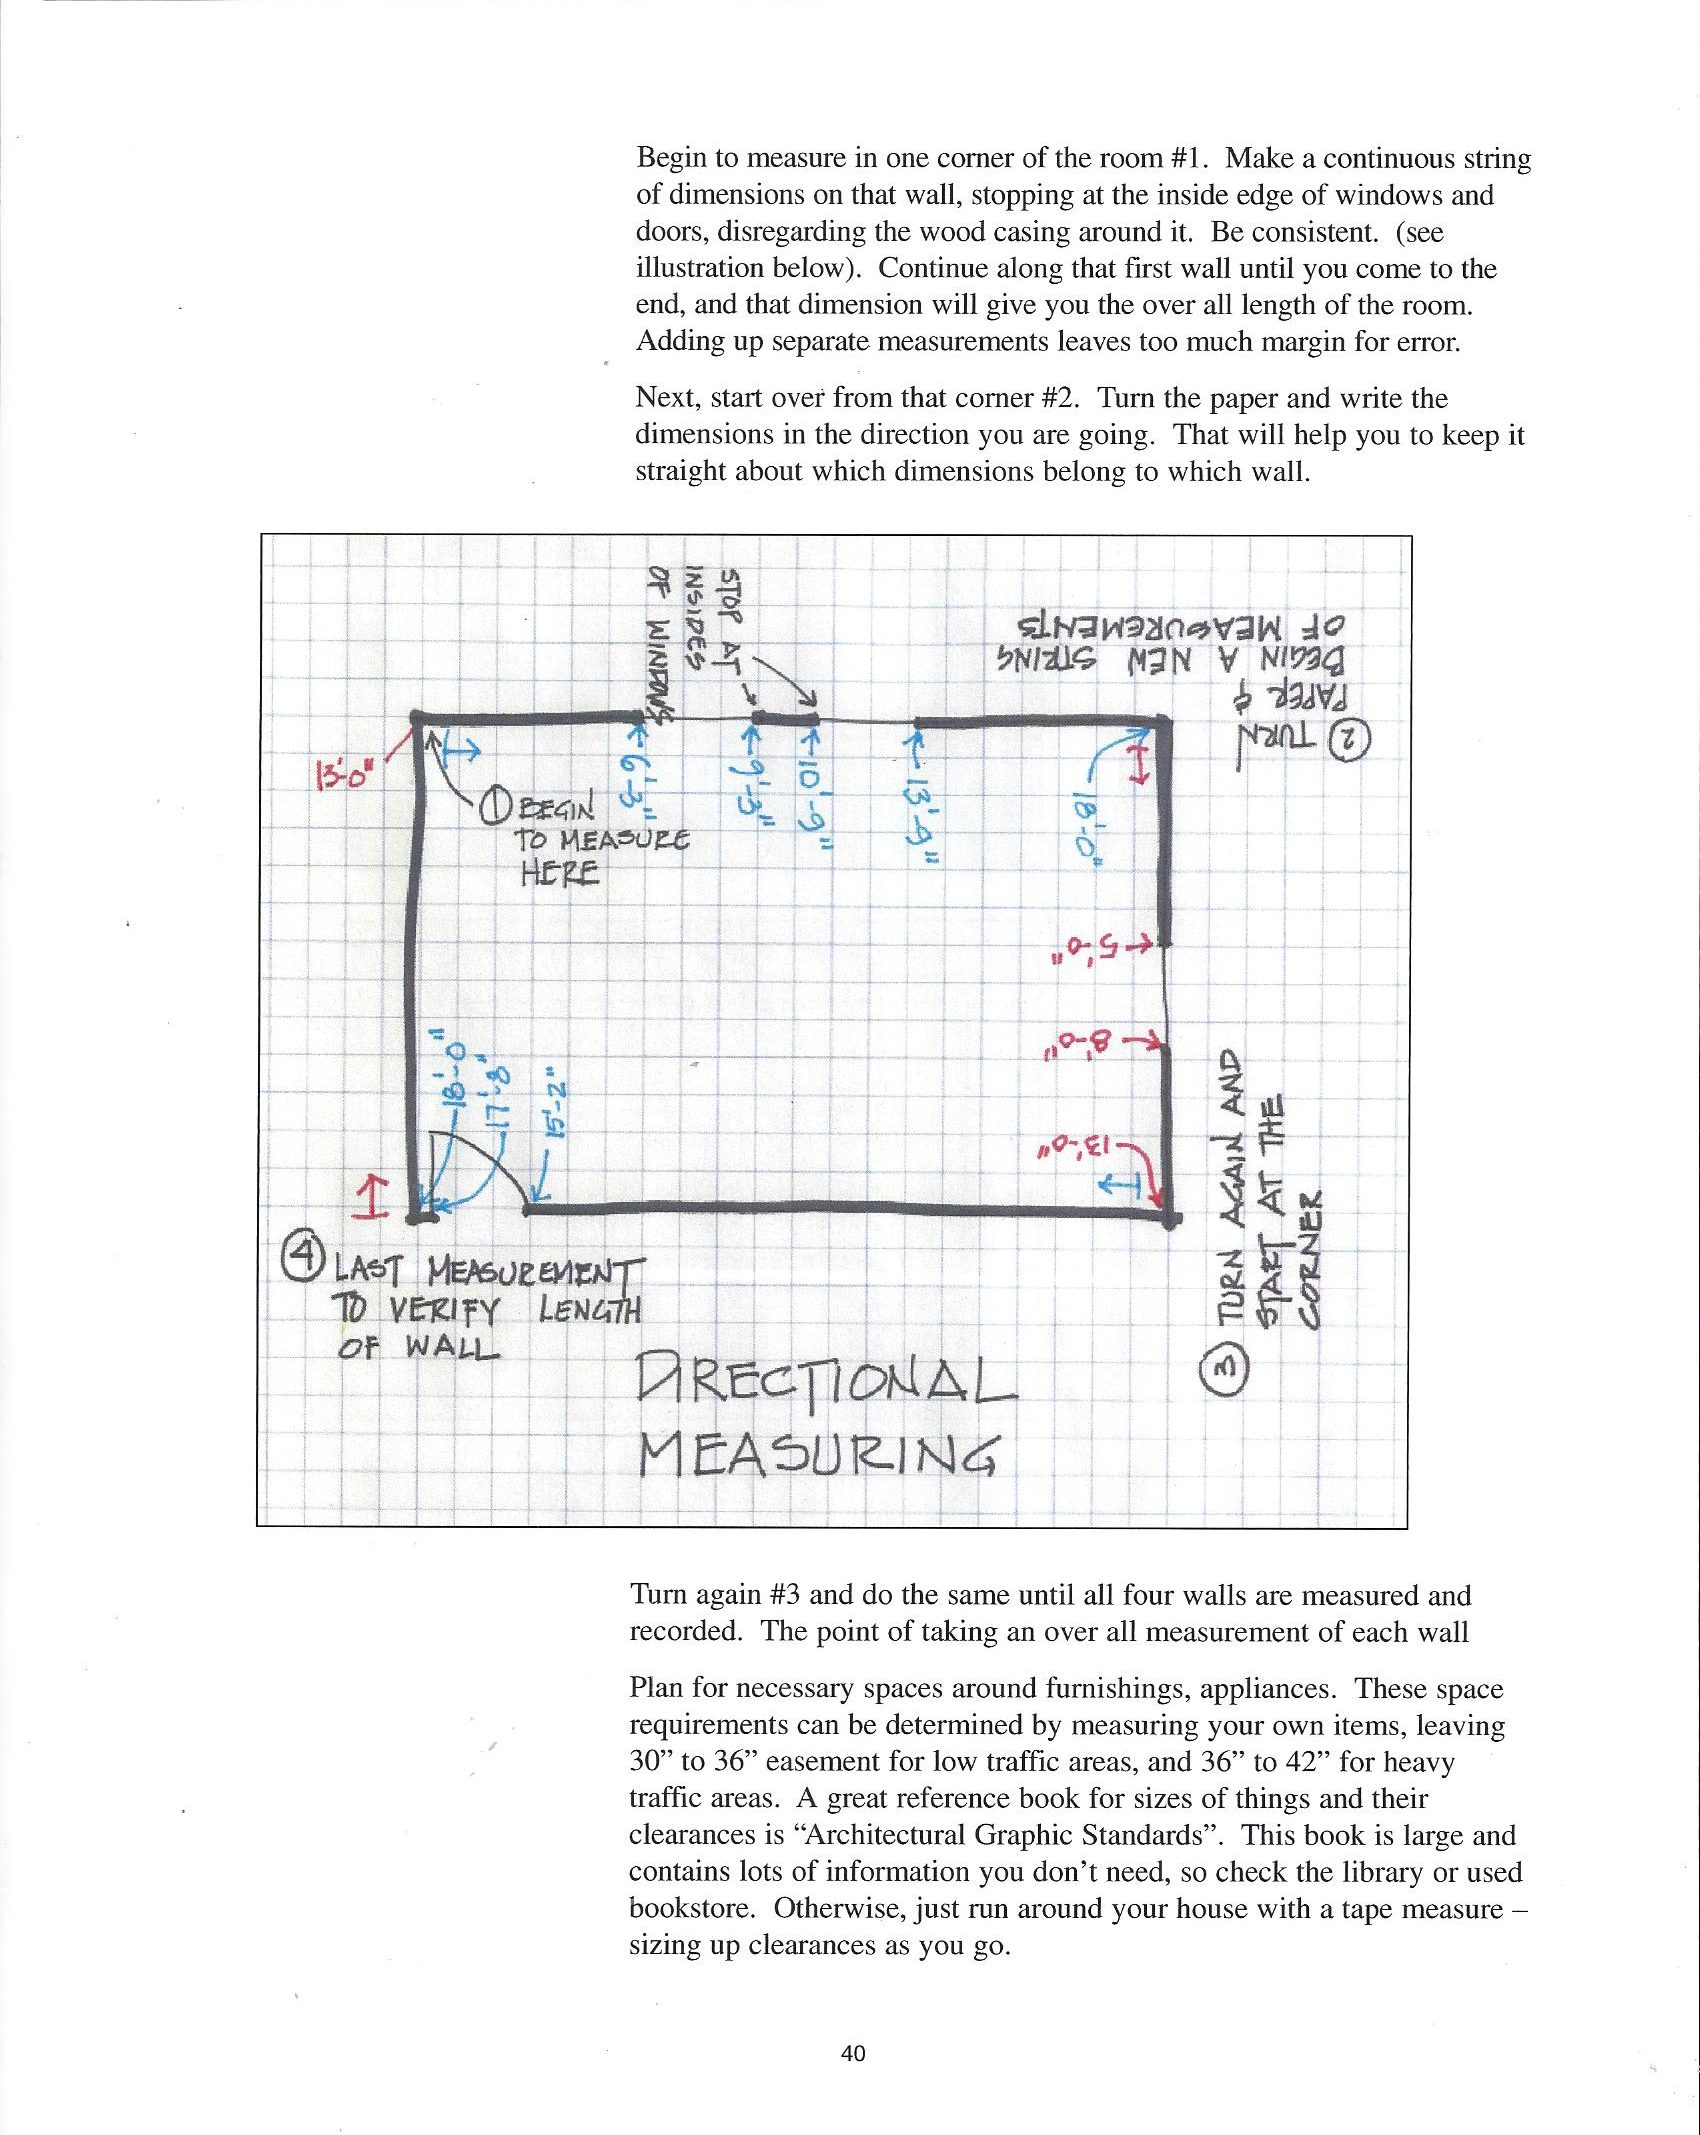 Begin to measure in one corner of the room #1.  Make a continuous string
of dimensions on that wall, stopping at the inside edge of windows and
doors, disregarding the wood casing around it.  Be consistent.  (see
illustration below).  Continue along that first wall until you come to the
end, and that dimension will give you the over all length of the room.
Adding up separate measurements leaves too much margin for error.
Next, start over from that corner #2.  Turn the paper and write the
dimensions in the direction you are going.  That will help you to keep it
straight about which dimensions belong to which wall.
STOP AT
INSIDES
OF WINDOWS
② TURN
PAPER &
BEGIN A NEW STRING
OF MEASUREMENTS
13'-0"
① BEGIN
TO MEASURE
HERE
6'-3"
9'-3"
10'-9"
13'-9"
18'-0"
5'-0"
8'-0"
13'-0"
18'-0"
17'-8"
15'-2"
③ TURN AGAIN AND
START AT THE
CORNER
④ LAST MEASUREMENT
TO VERIFY LENGTH
OF WALL
DIRECTIONAL
MEASURING
Turn again #3 and do the same until all four walls are measured and
recorded.  The point of taking an over all measurement of each wall
Plan for necessary spaces around furnishings, appliances.  These space
requirements can be determined by measuring your own items, leaving
30” to 36” easement for low traffic areas, and 36” to 42” for heavy
traffic areas.  A great reference book for sizes of things and their
clearances is “Architectural Graphic Standards”.  This book is large and
contains lots of information you don’t need, so check the library or used
bookstore.  Otherwise, just run around your house with a tape measure –
sizing up clearances as you go.
40